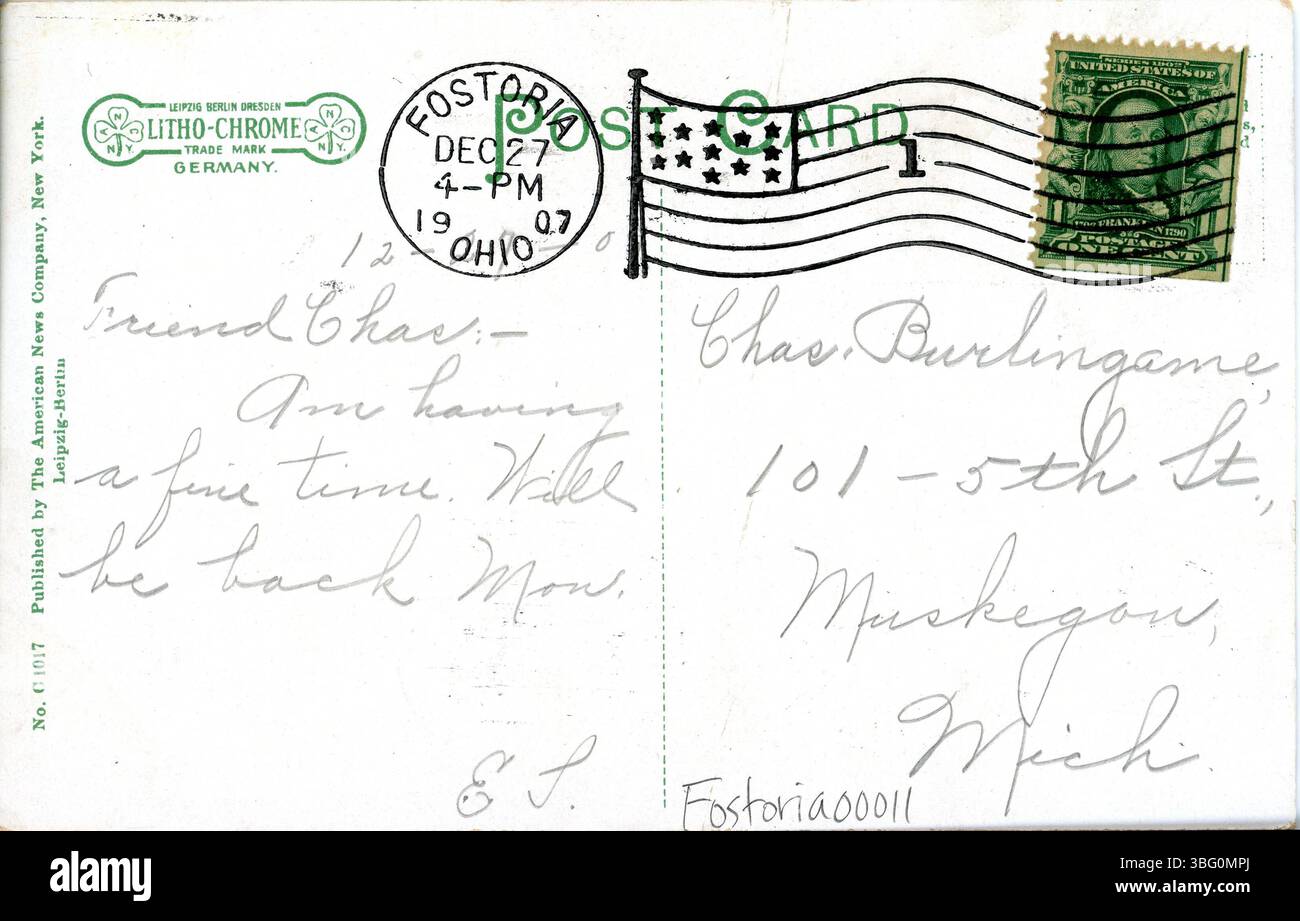 LEIPZIG BERLIN DRESDEN
LITHO-CHROME
TRADE MARK
GERMANY.
A N C N.Y.
A N C N.Y.
POST CARD
FOSTORIA
DEC 27
4-PM
1907
OHIO
1
SERIES 1902
UNITED STATES OF
AMERICA
FRANKLIN
1790
POSTAGE
ONE CENT
No. C 1017 Published by The American News Company, New York.
Leipzig-Berlin
12-
Friend Chas:-
Am having
a fine time. Will
be back Mon.
E S.
Chas. Burlingame,
101-5th St.,
Muskegon,
Mich.
Fostoria00011
alamy
Image ID: 3BG0MPJ
www.alamy.com